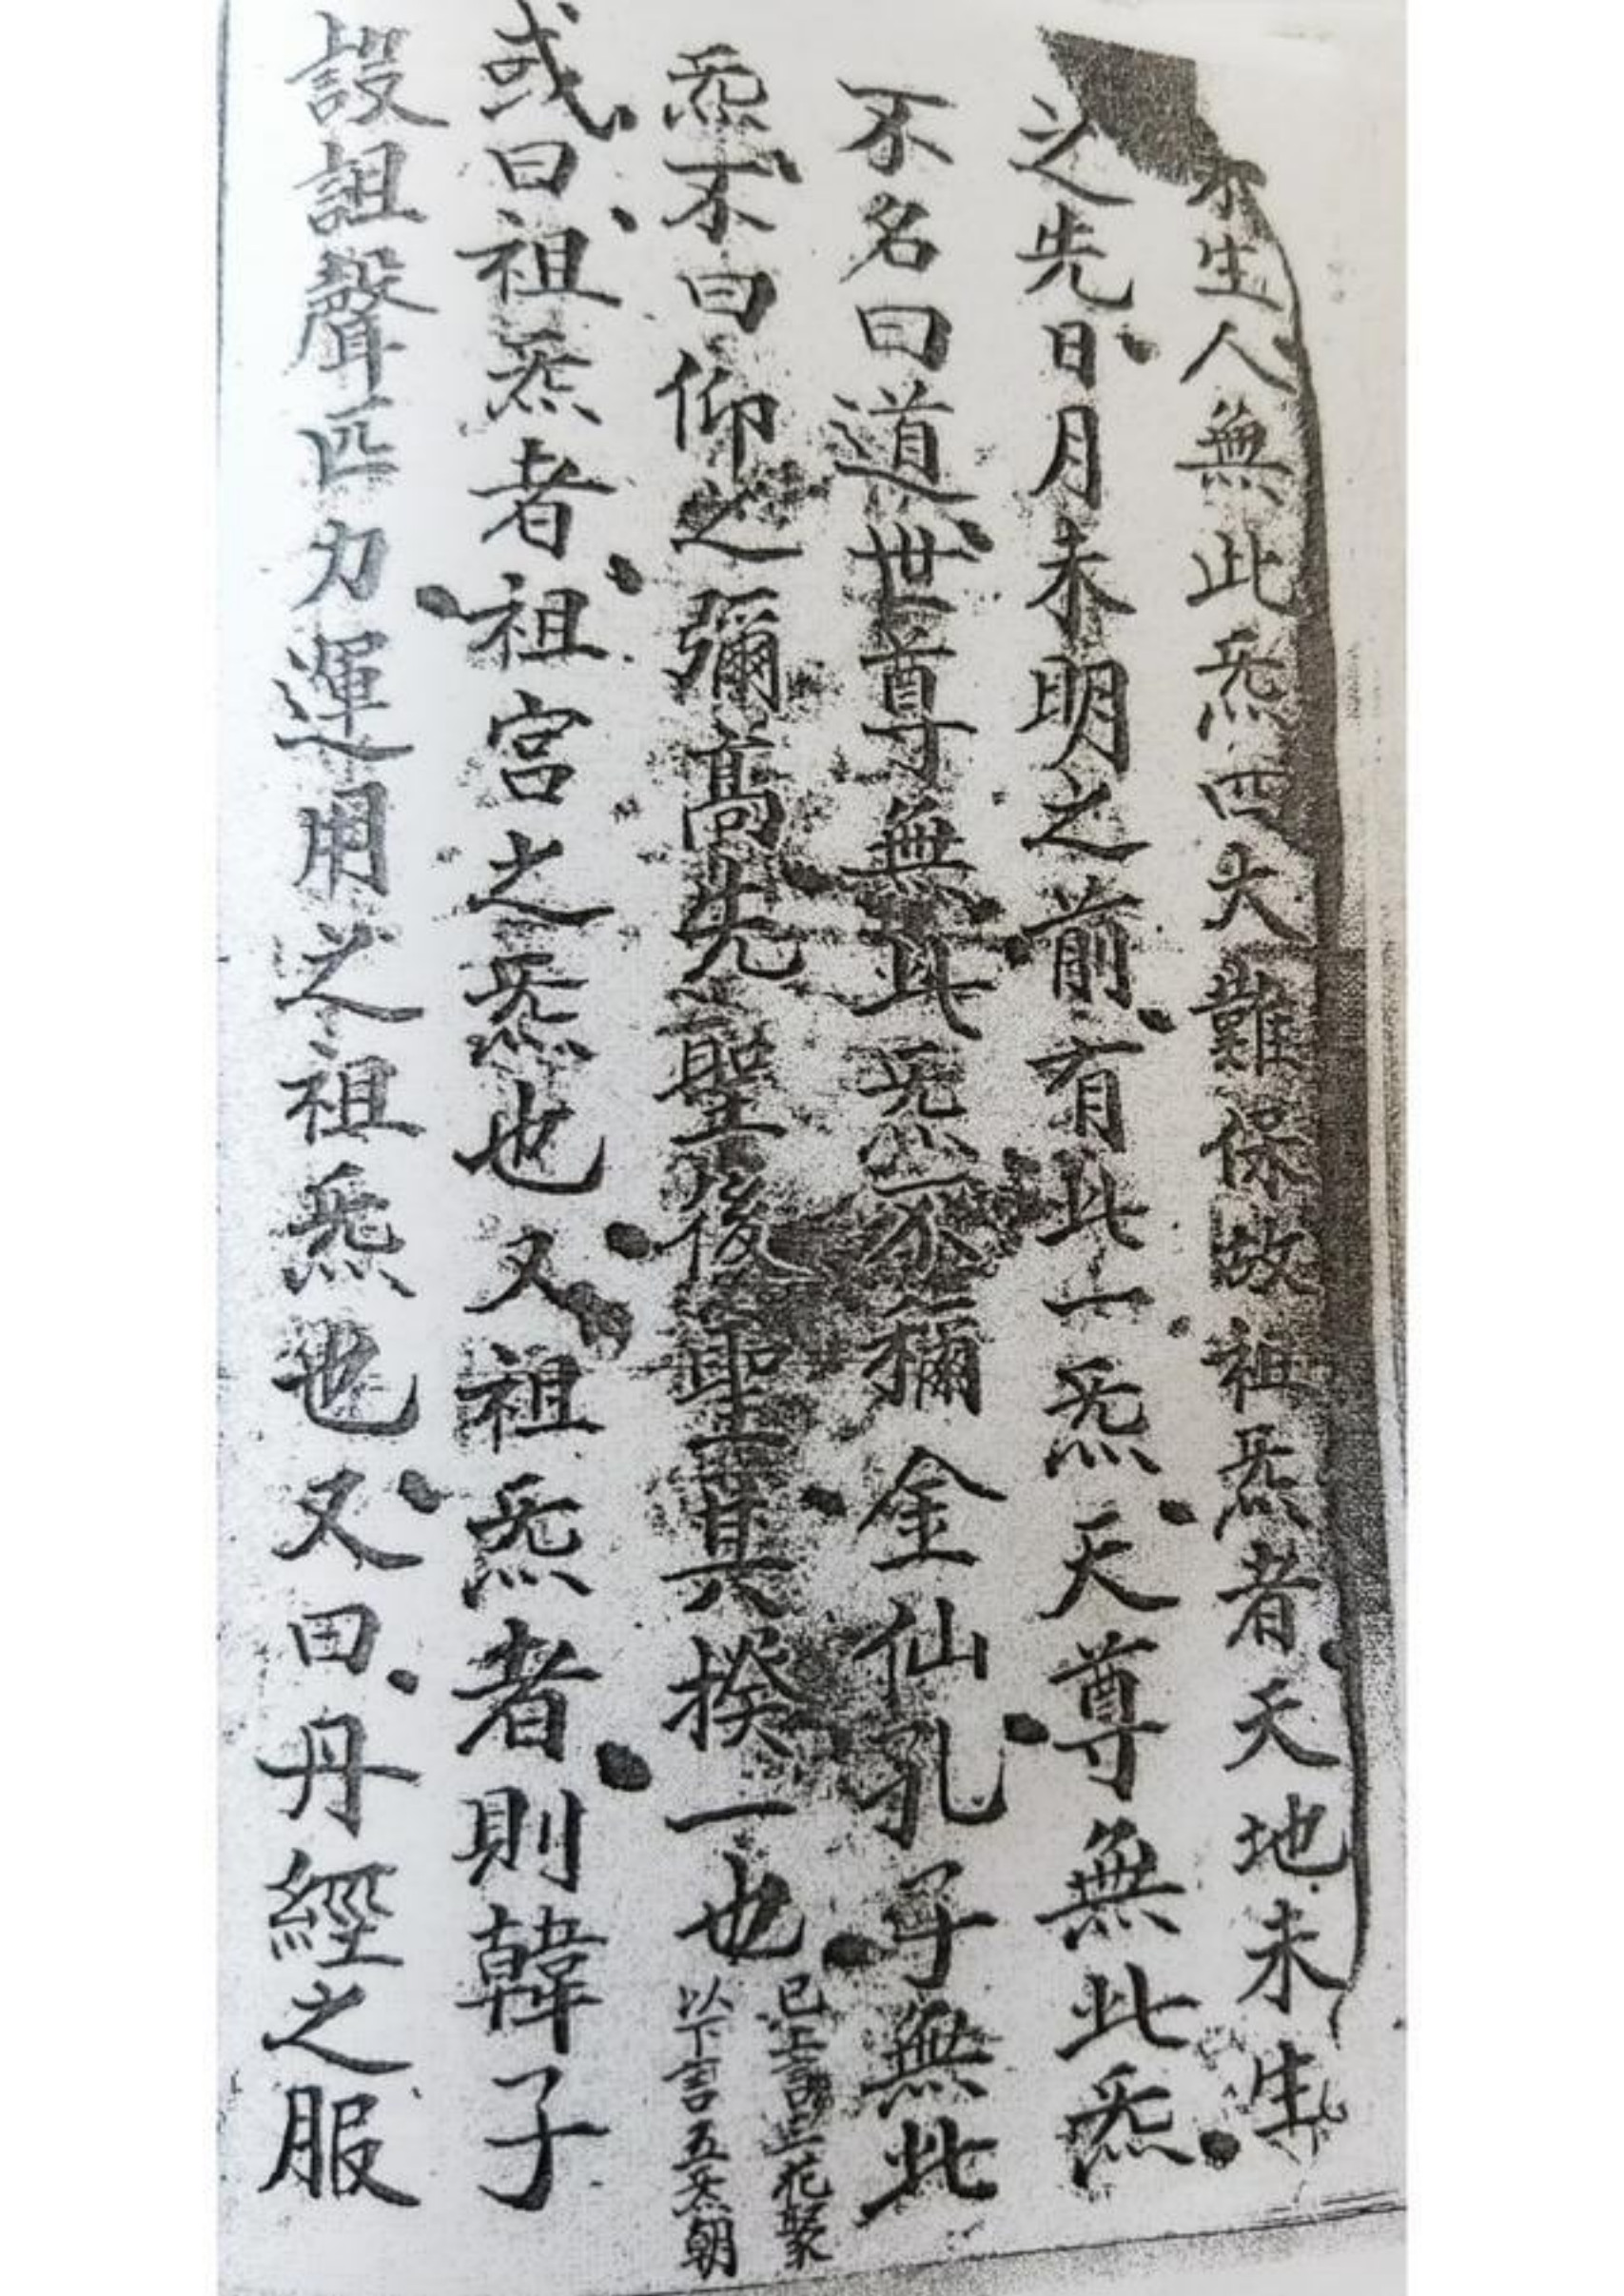 不生人無此炁四大難保故祖炁者天地未生
之先日月未明之前有此一炁天尊無此炁
不名曰道世尊無此炁不彌金仙孔子無此
炁不曰仰之彌髙先聖後聖其揆一也
已上言三花聚
以下言五炁朝
或曰祖炁者祖宮之炁也又祖炁者則韓子
設詛聲匹力運用之祖炁也又曰丹經之服